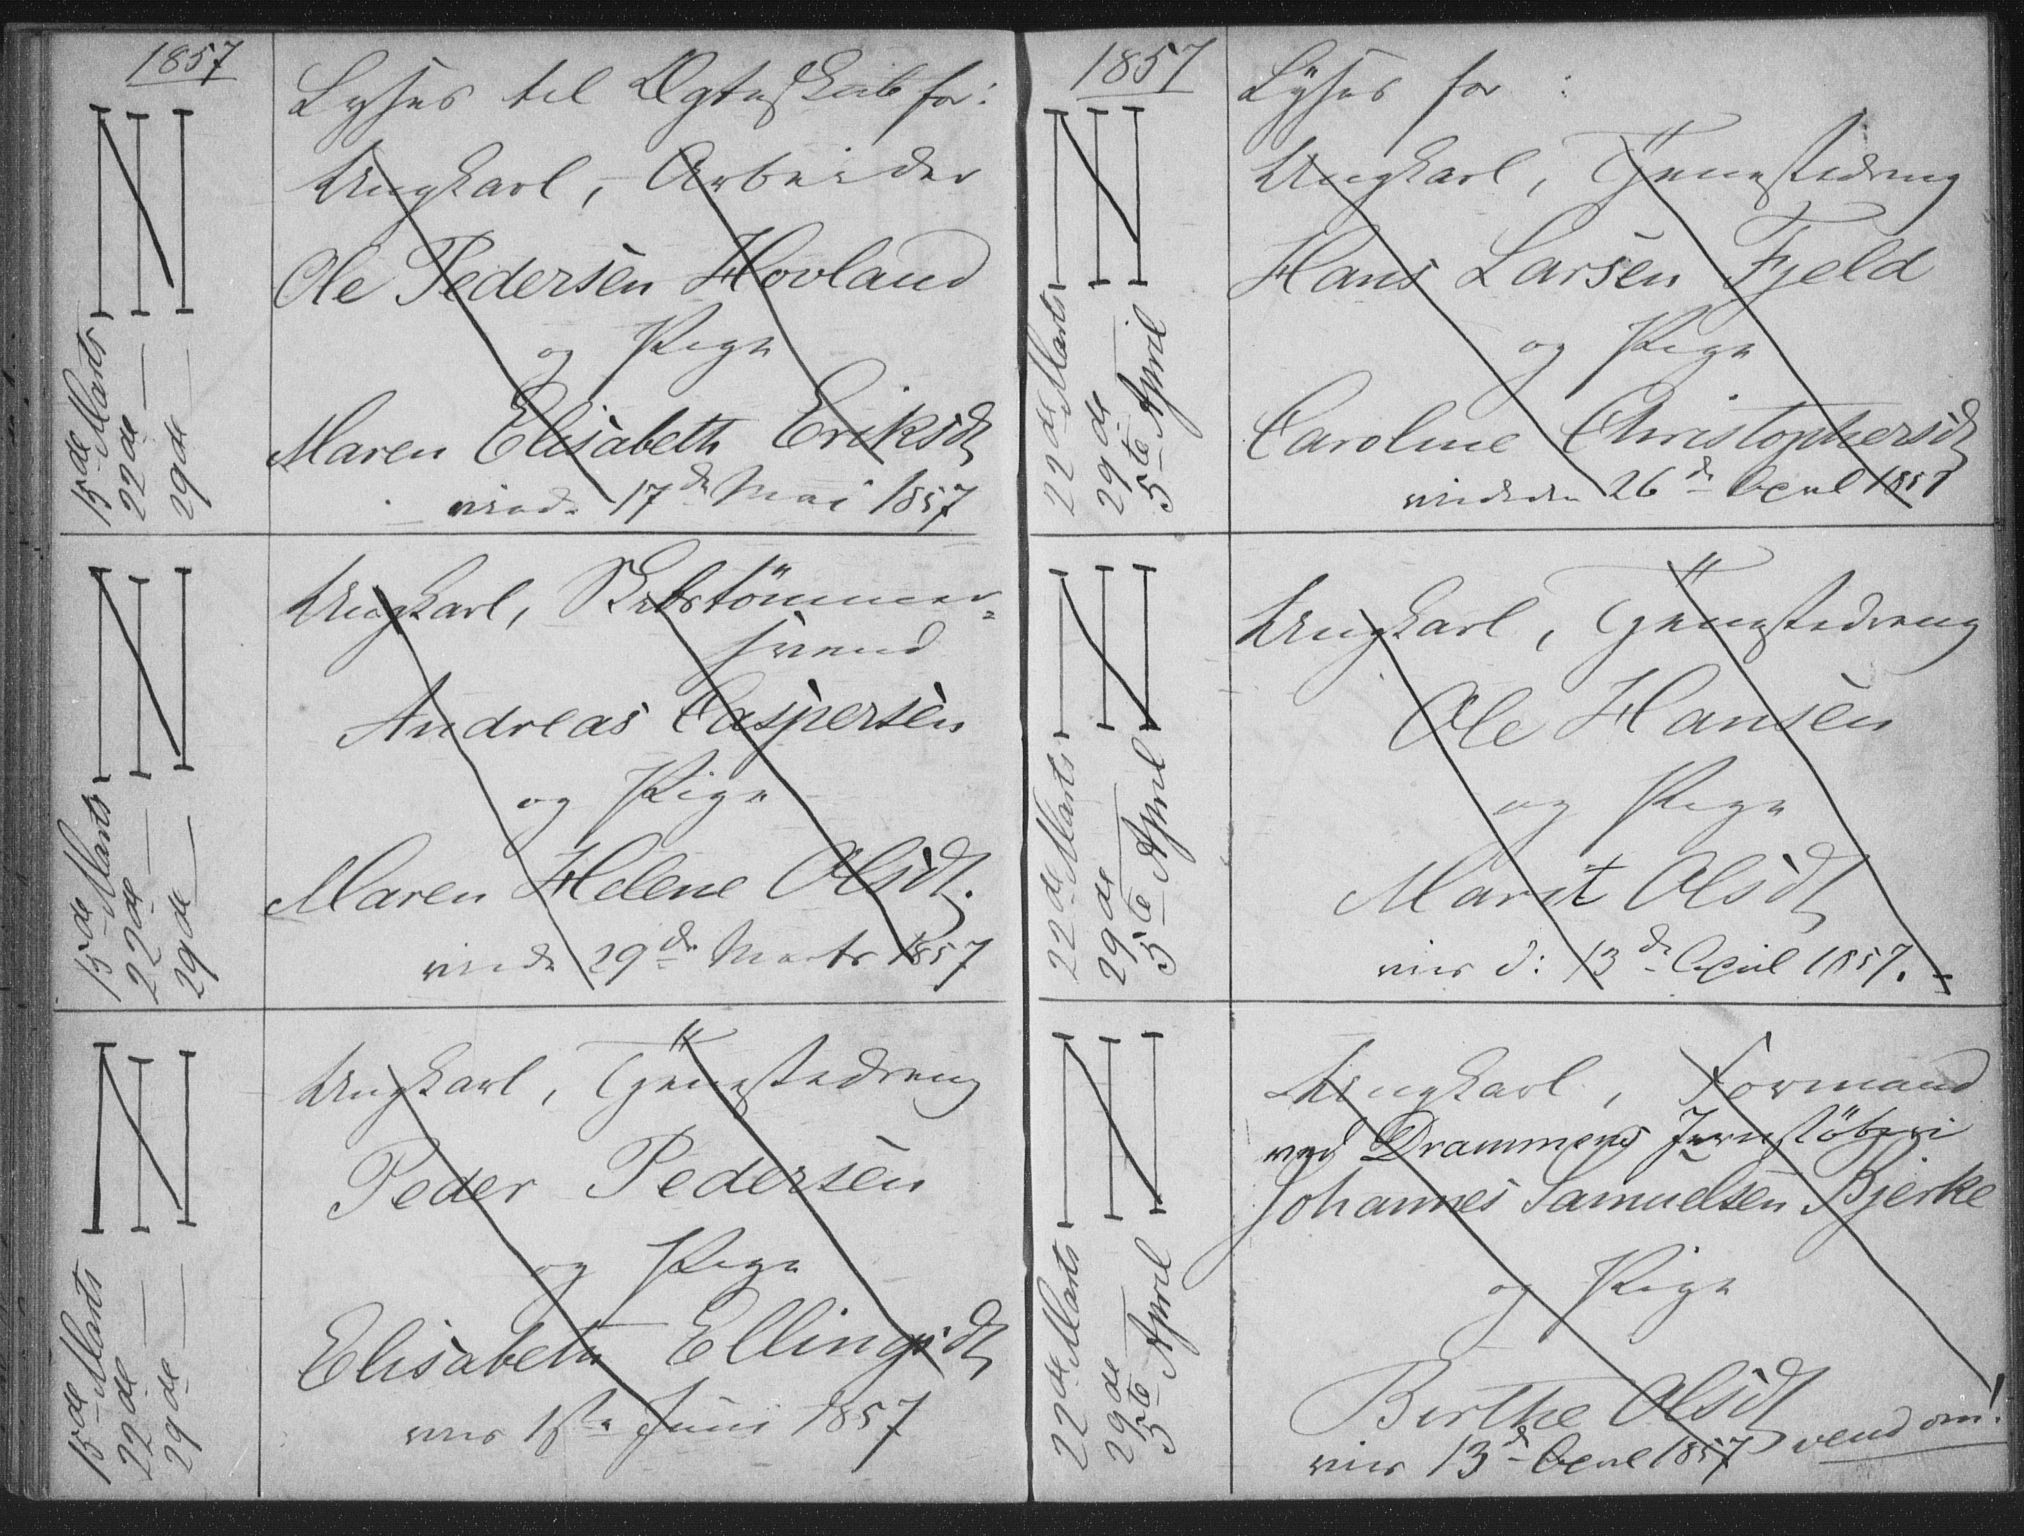 1857
Lyses til Ægteskab for:
15de Marts
22de —
29de —
Ungkarl, Arbeider
Ole Pedersen Hovland
og Pige
Maren Elisabeth Eriksdt
viede 17de Mai 1857
15de Marts
22de —
29de —
Ungkarl, Skibstömmer=
svend
Andreas Caspersen
og Pige
Maren Helene Olsdt.
viede 29de Marts 1857
15de Marts
22de —
29de —
Ungkarl, Tjenestedreng
Peder Pedersen
og Pige
Elisabeth Ellingsdt
vies 1ste Juni 1857
1857
Lyses for :
22de Marts
29de
5te April
Ungkarl, Tjenestedreng
Hans Larsen Fjeld
og Pige
Caroline Christophersdt
viede den 26de April 1857
22de Marts
29de
5te April
Ungkarl, Tjenestedreng
Ole Hansen
og Pige
Marit Olsdt
vies d: 13de April 1857.
22de Marts
29de
5te April
Ungkarl, Formand
ved Drammens Jernstöberi
Johannes Samuelsen Bjerke
og Pige
Birthe Olsdt
vies 13de April 1857 vend om!